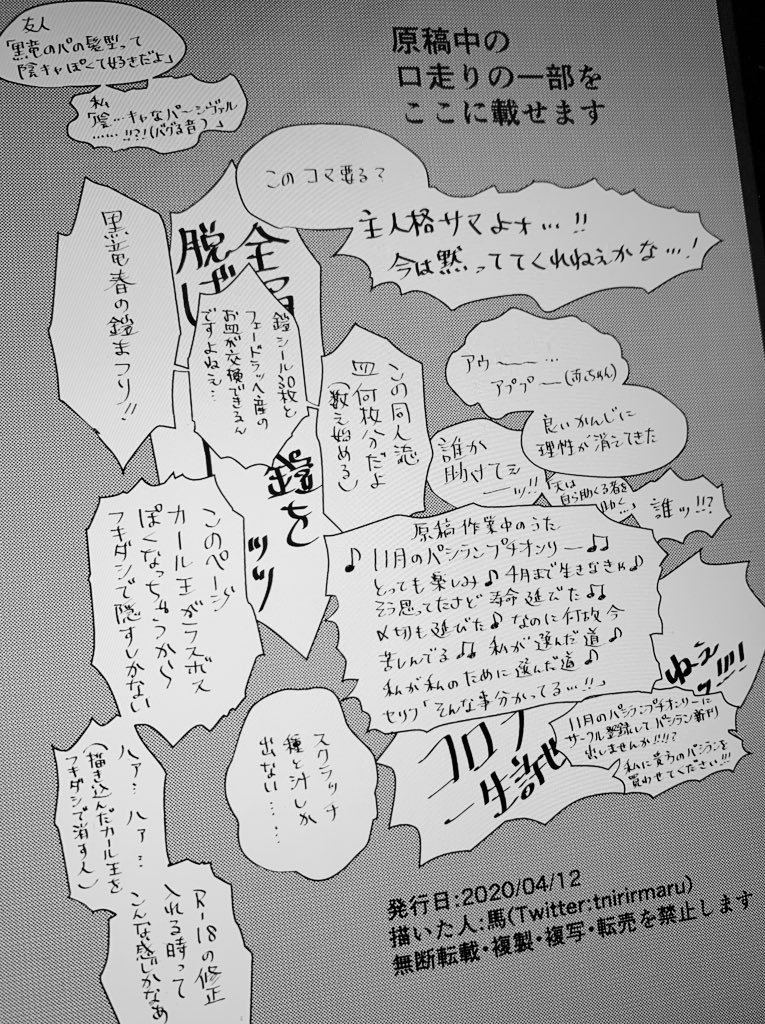 原稿中の
口走りの一部を
ここに載せます
友人
「黒竜のパの髪型って
陰キャぽくて好きだよ」
私
「陰…キャなパーシヴァル
……!!?!(バグる音)」
このコマ要る?
主人格サマよォ…!!
今は黙っててくれねえかな…!
黒竜春の鎧まつり!!
脱げ
鎧を
ッッ
鎧シール30枚と
フェードラッヘ産の
お皿が交換できるん
ですよねえ…
この同人誌
皿何枚分だよ
(数え始める)
アウーー…
アププー(赤ちゃん)
良いかんじに
理性が消えてきた
誰か
助けてぇ
ーッ!!
天は
自ら助くる者を
助く…
誰ッ!!?
このページ
カール王がラスボス
ぽくなっちゃうから
フキダシで隠すしかない
原稿作業中のうた
♪11月のパシランプチオンリー♪♫
とっても楽しみ♪4月まで生きなきゃ♪
そう思ってたけど寿命延びた♪♫
〆切も延びた♪なのに何故今
苦しんでる♪♫私が選んだ道♪
私が私のために選んだ道♪
セリフ「そんな事分かってる…!!」
コロナ
一生許
ねェ
ッ!!!!
11月のパシランプチオンリーに
サークル登録してパシラン新刊
出しませんか!!!!?
私に貴方のパシランを
買わせてください!!!
スクラッチ
種と汁しか
出ない……
ハァ…ハァ…
(描き込んだカール王を
フキダシで消す人)
R-18の修正
入れる時って
こんな感じかなぁ
発行日:2020/04/12
描いた人:馬(Twitter:tnirirmaru)
無断転載・複製・複写・転売を禁止します